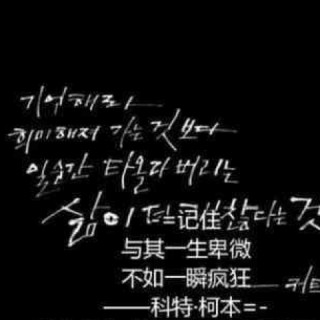 기억해라
희미해져 가는 것 보다
일순간 타올라 버리는
삶이 더 记住 참다는 것
与其一生卑微
不如一瞬疯狂
커트
——科特·柯本=-